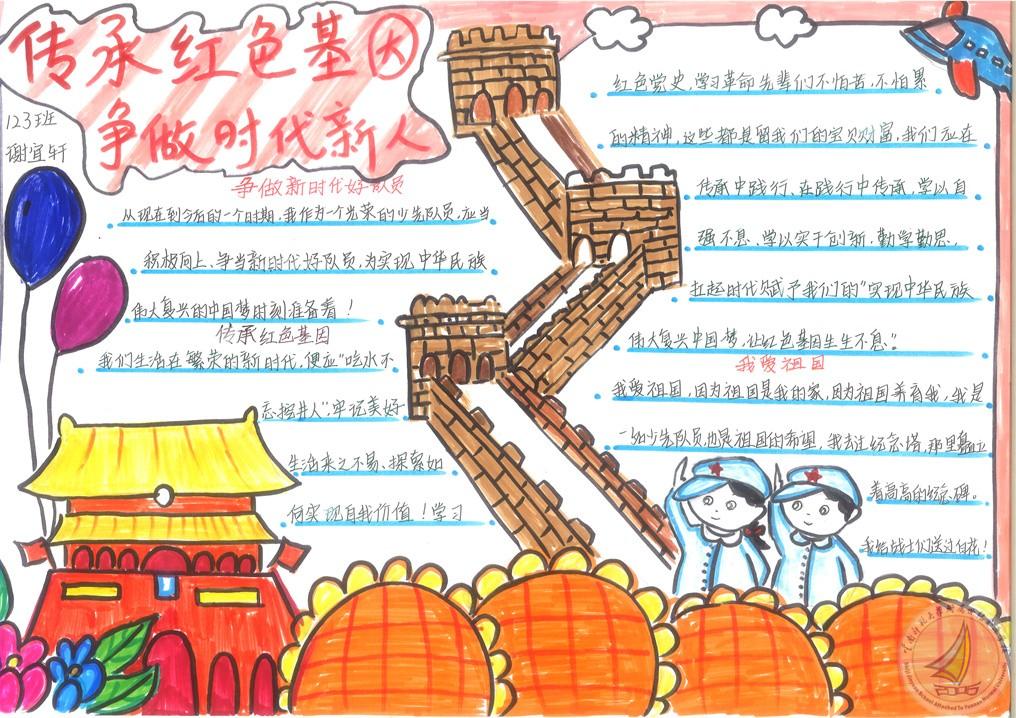 传承红色基因
争做时代新人
123班
谢宜轩
争做新时代好队员
从现在到今后的一个时期，我作为一个光荣的少先队员，应当
积极向上、争当新时代好队员，为实现中华民族
伟大复兴的中国梦时刻准备着！
传承红色基因
我们生活在繁荣的新时代，便应“吃水不
忘挖井人”牢记美好
生活来之不易、探索如
何实现自我价值！学习
红色党史，学习革命先辈们不怕苦、不怕累
的精神，这些都是留我们的宝贝财富，我们应在
传承中践行、在践行中传承，学以自
强不息、学以实干创新、勤学勤思、
扛起时代赋予我们的“实现中华民族
伟大复兴中国梦，让红色基因生生不息”。
我爱祖国
我爱祖国，因为祖国是我的家，因为祖国养育我，我是
一如少先队员，也是祖国的希望，我去过纪念塔，那里矗立
着高高的纪念碑。
我给战士们送过白花！